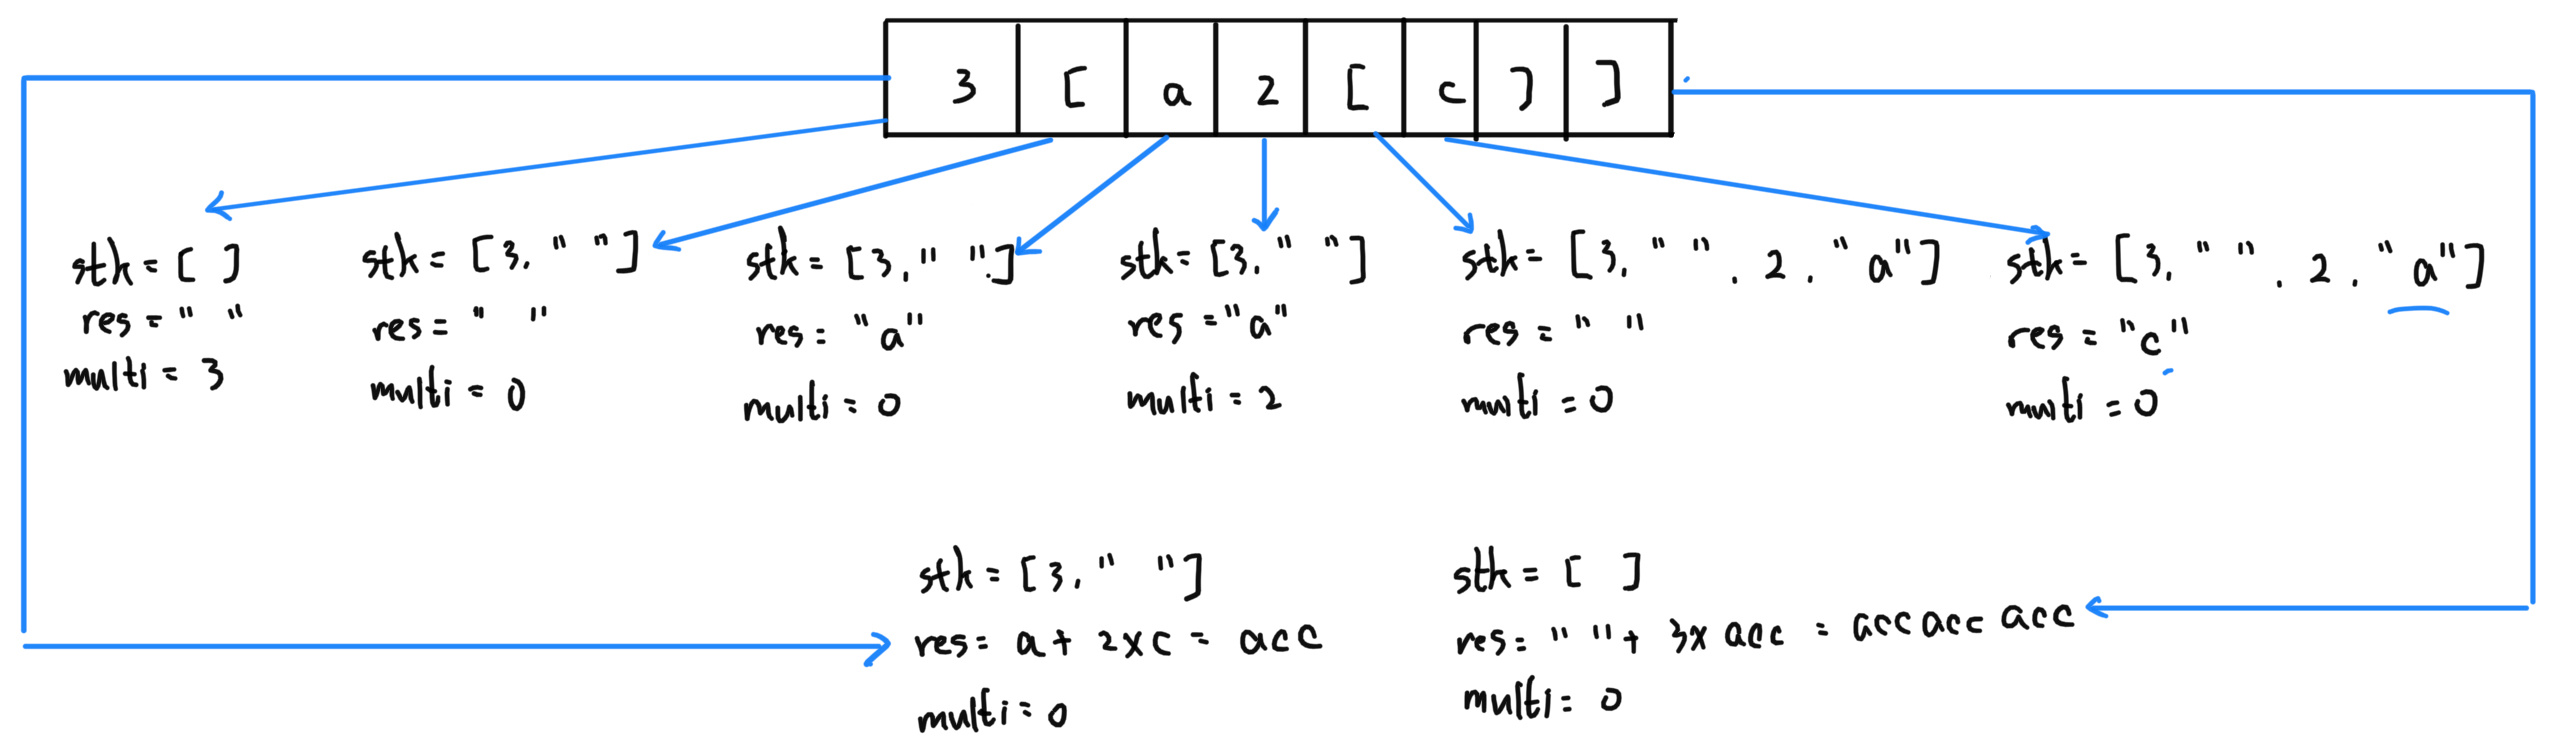 3 [ a 2 [ c ] ]
stk = [ ]
res = " "
multi = 3
stk = [3, " "]
res = " "
multi = 0
stk = [3, " "]
res = "a"
multi = 0
stk = [3, " "]
res = "a"
multi = 2
stk = [3, " ", 2, "a"]
res = " "
multi = 0
stk = [3, " ", 2, "a"]
res = "c"
multi = 0
stk = [3, " "]
res = a + 2 x c = acc
multi = 0
stk = [ ]
res = " " + 3 x acc = acc acc acc
multi = 0